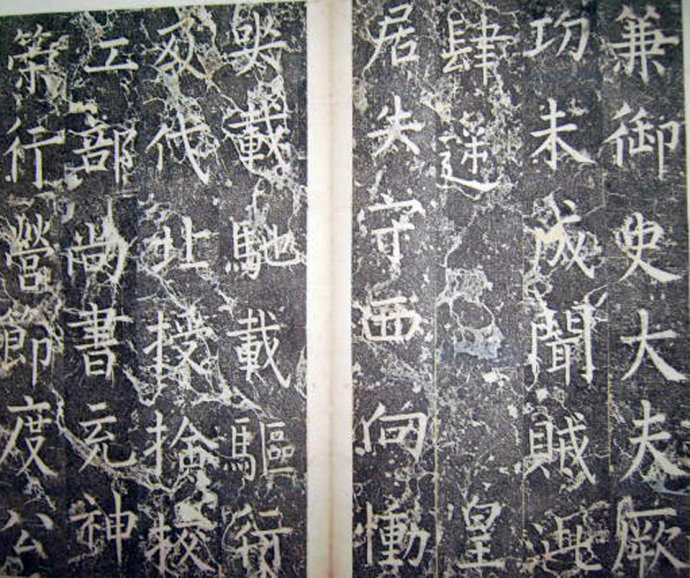 兼御史大夫厥
功未成聞賊泚
肆逆皇
居失守西向慟
哭載馳載驅衍
及代北授檢校
工部尚書充神
策行營節度公